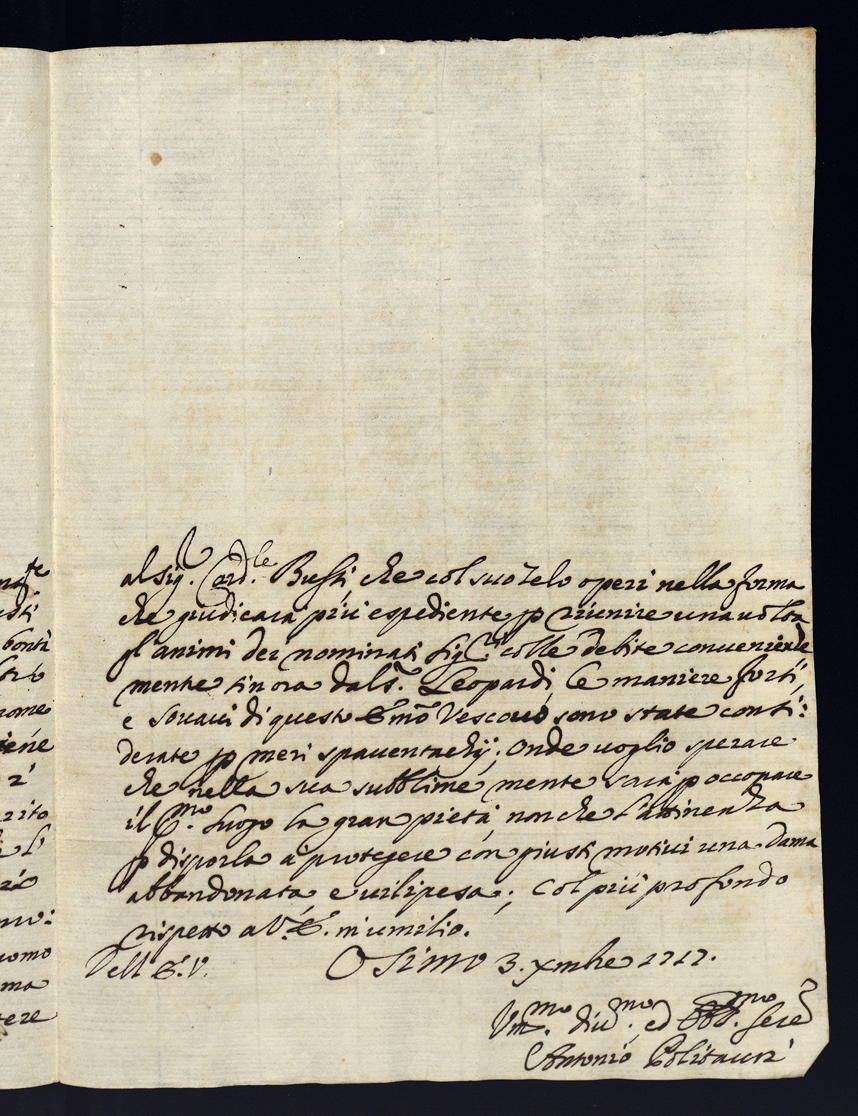 al Sig.r Card.le Bussi, che col suo zelo operi nella forma
che giudicarà più espediente p riunire una uolta
gl'animi dei nominati Sig.ri colle debite conuenienze
mentre sin ora dal S. Leopardi le maniere forti,
e soaui di questo Emo Vescouo sono state consi:
derate p meri spauentachij; onde uoglio sperare
che nella sua subblime mente sarà p occupare
il P.mo luogo la gran pietà non che l'attinenza
p disporla à protegere con giusti motiui una dama
abbandonata e uilipesa; col più profondo
rispetto a V. E. m'umilio.
Dell E. V. Osimo 3. Xmbre 1717.
Um.mo diu.mo ed Obb.mo Sere
Antonio